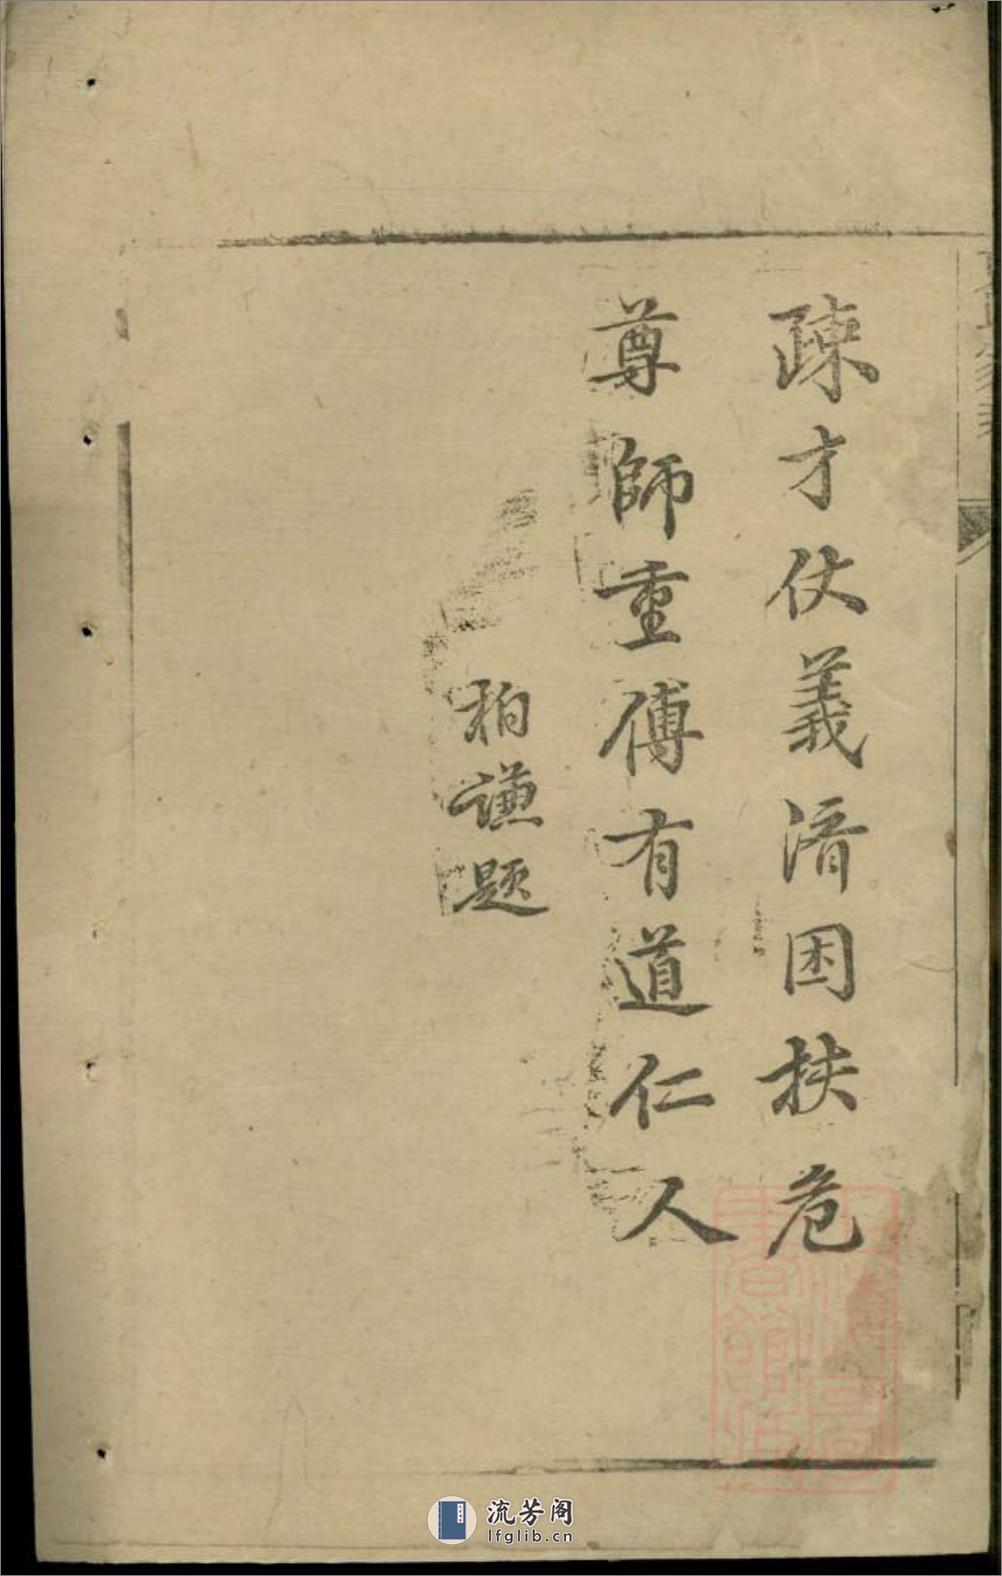 疎才仗義済困扶危
尊師重傅有道仁人
柏謙題
流芳阁
lfglib.cn